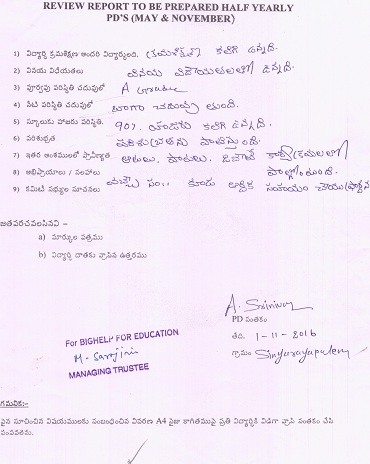 REVIEW REPORT TO BE PREPARED HALF YEARLY
PD'S (MAY & NOVEMBER)
1) విద్యార్థి క్రమశిక్షణ అందరి విద్యార్థులది. క్రమశిక్షణ కలిగి ఉన్నది.
2) వినయ విధేయతలు వినయ విధేయతలతో ఉన్నది.
3) పూర్వపు పరిస్థితి చదువులో A Grade
4) నేటి పరిస్థితి చదువులో బాగా చదువు తుంది.
5) స్కూలుకు హాజరు పరిస్థితి. 90% హాజరు కలిగి ఉన్నది.
6) పరిశుభ్రత పరిశుభ్రతను పాటిస్తుంది.
7) ఇతర అంశములలో ప్రావీణ్యత ఆటలు, పాటలు,
8) అభిప్రాయాలు / సలహాలు పాల్గొంటుంది.
9) కమిటీ సభ్యుల సూచనలు వచ్చే సం.. కూడా ఆర్థిక సహాయం
జతపరచవలసినవి –
a) మార్కుల పత్రము
b) విద్యార్థి దాతకు వ్రాసిన ఉత్తరము
A. Srinivas
PD సంతకం
తేది. 1-11-2016
గ్రామం
For BIGHELP FOR EDUCATION
M. Sarojini
MANAGING TRUSTEE
గమనిక:-
పైన సూచించిన విషయములకు సంబంధించిన వివరణ A4 సైజు కాగితముపై ప్రతి విద్యార్థికి విడిగా వ్రాసి సంతకం చేసి
పంపవలెను.